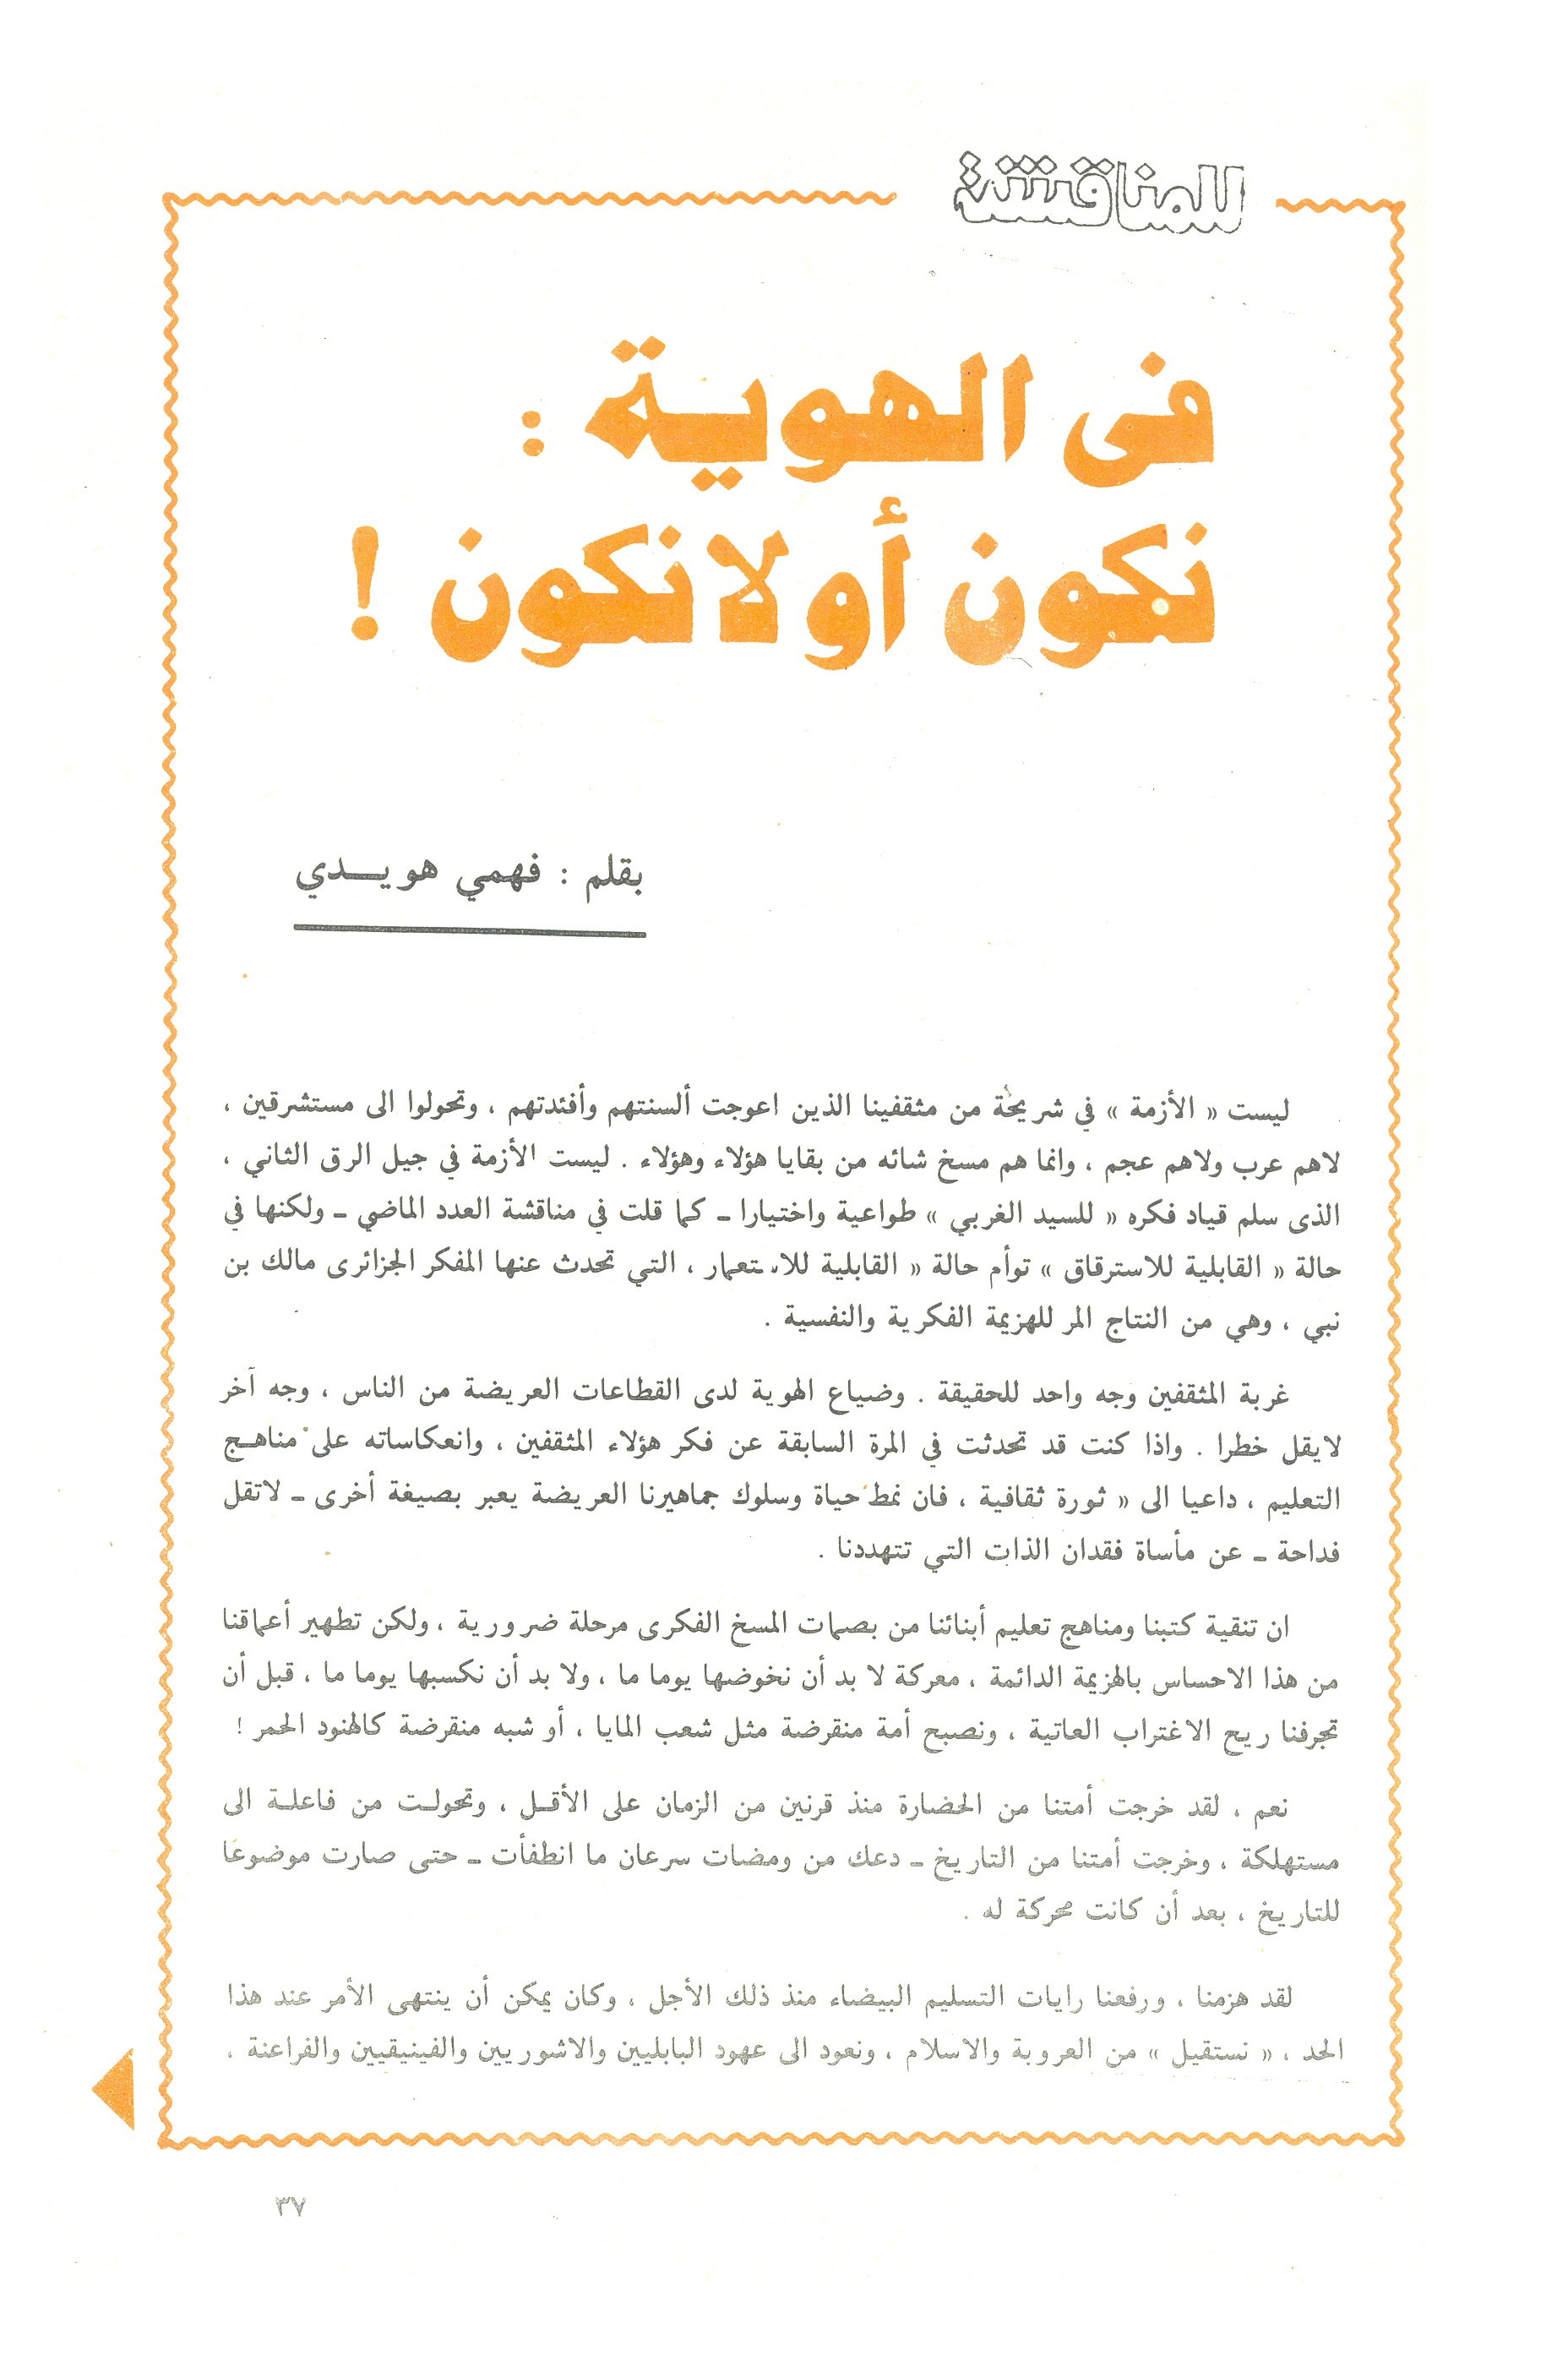 للمناقشة
فى الهوية :
نكون أو لا نكون !
بقلم : فهمي هويـــدي
ليست « الأزمة » في شريحة من مثقفينا الذين اعوجت ألسنتهم وأفئدتهم ، وتحولوا الى مستشرقين ،
لاهم عرب ولاهم عجم ، وانما هم مسخ شائه من بقايا هؤلاء وهؤلاء . ليست الأزمة في جيل الرق الثاني ،
الذى سلم قياد فكره « للسيد الغربي » طواعية واختيارا ـ كما قلت في مناقشة العدد الماضي ـ ولكنها في
حالة « القابلية للاسترقاق » توأم حالة « القابلية للاستعمار ، التي تحدث عنها المفكر الجزائرى مالك بن
نبي ، وهي من النتاج المر للهزيمة الفكرية والنفسية .
غربة المثقفين وجه واحد للحقيقة . وضياع الهوية لدى القطاعات العريضة من الناس ، وجه آخر
لايقل خطرا . واذا كنت قد تحدثت في المرة السابقة عن فكر هؤلاء المثقفين ، وانعكاساته على مناهـج
التعليم ، داعيا الى « ثورة ثقافية ، فان نمط حياة وسلوك جماهيرنا العريضة يعبر بصيغة أخرى ـ لاتقل
فداحة ـ عن مأساة فقدان الذات التي تتهددنا .
ان تنقية كتبنا ومناهج تعليم أبنائنا من بصمات المسخ الفكرى مرحلة ضرورية ، ولكن تطهير أعماقنا
من هذا الاحساس بالهزيمة الدائمة ، معركة لا بد أن نخوضها يوما ما ، ولا بد أن نكسبها يوما ما ، قبل أن
تجرفنا ريح الاغتراب العاتية ، ونصبح أمة منقرضة مثل شعب المايا ، أو شبه منقرضة كالهنود الحمر !
نعم ، لقد خرجت أمتنا من الحضارة منذ قرنين من الزمان على الأقـل ، وتحولـت من فاعلـة الى
مستهلكة ، وخرجت أمتنا من التاريخ ـ دعك من ومضات سرعان ما انطفأت ـ حتى صارت موضوعا
للتاريخ ، بعد أن كانت محركة له .
لقد هزمنا ، ورفعنا رايات التسليم البيضاء منذ ذلك الأجل ، وكان يمكن أن ينتهى الأمر عند هذا
الحد ، « نستقيل » من العروبة والاسلام ، ونعود الى عهود البابليين والاشوريين والفينيقيين والفراعنة ،
٣٧